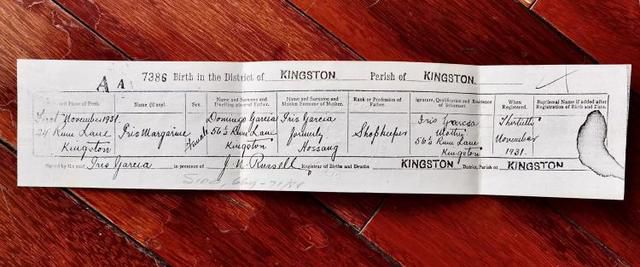 A A 7386 Birth in the District of KINGSTON Parish of KINGSTON
and Place of Birth.
Name (if any).
Sex.
Name and Surname and Dwelling-place of Father.
Name and Surname and Maiden Surname of Mother.
Rank or Profession of Father.
Signature, Qualification and Residence of Informant.
When Registered.
Baptismal Name if added after Registration of Birth and Date.
November 1931.
24 Rum Lane
Kingston
Iris Margarine
Female
Domingo Garcia
56½ Rum Lane
Kingston
Iris Garcia
formerly
Hossang
Shopkeeper
Iris Garcia
Mother
56½ Rum Lane
Kingston
Thirtieth
November
1931.
Signed by the said Iris Garcia in presence of J. N. Russell Registrar of Births and Deaths KINGSTON District, Parish of KINGSTON